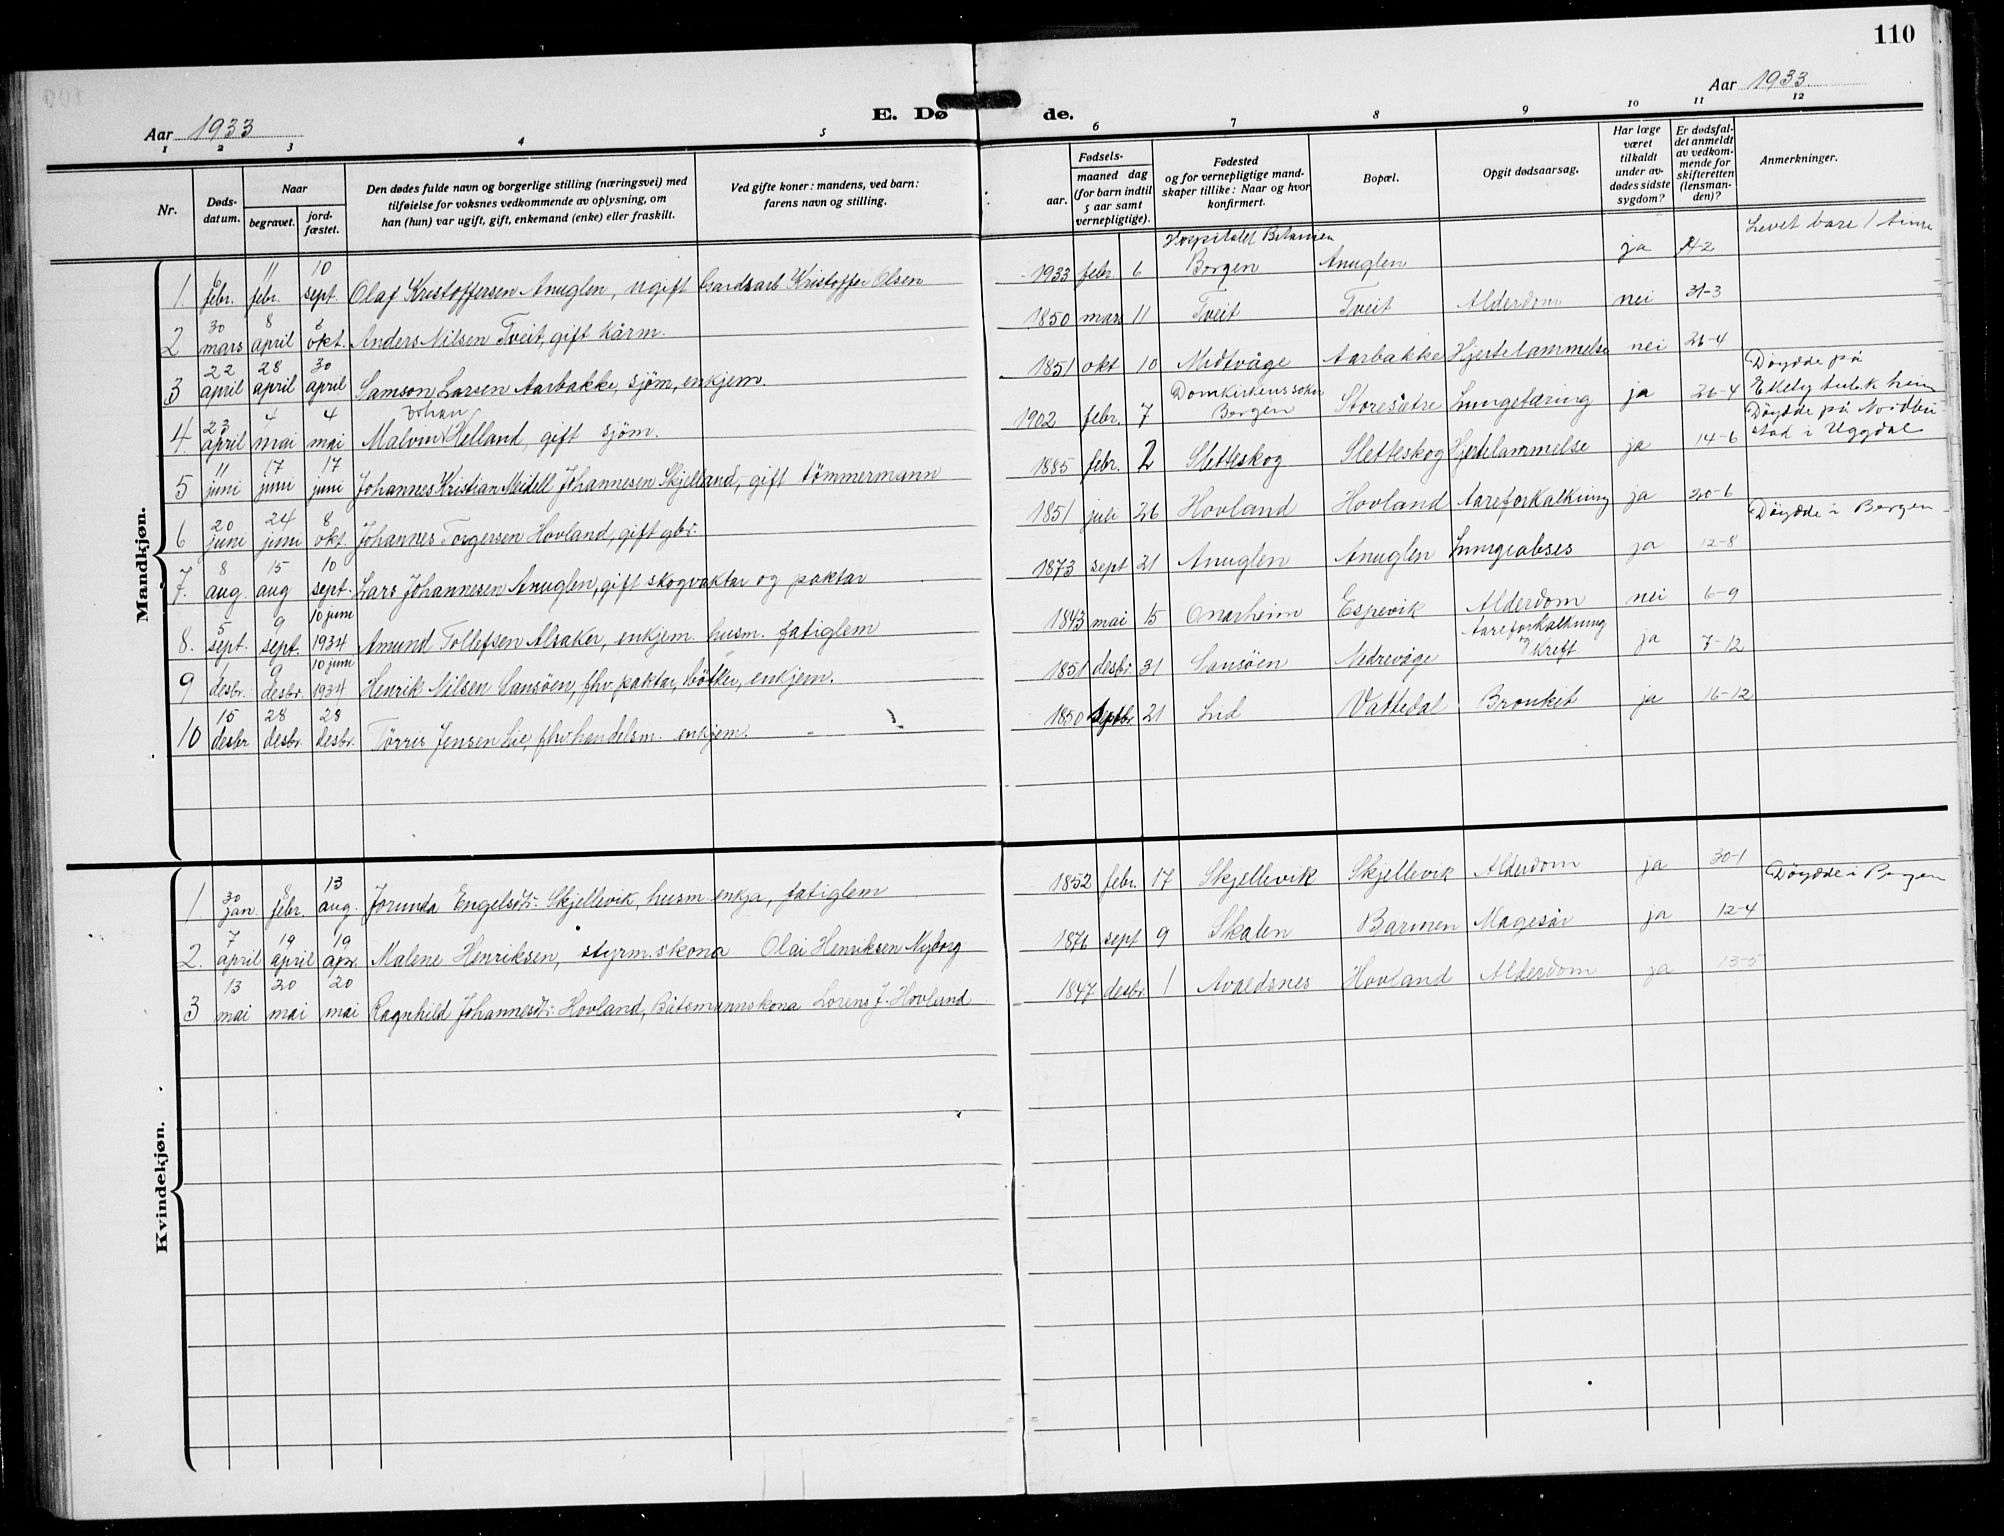 110
Aar 1933
Aar 1933
E. Dø de.
1 2 3 4 5 6 7 8 9 10 11 12
Nr.
Døds-
datum.
Naar
begravet.
jord-
fæstet.
Den dødes fulde navn og borgerlige stilling (næringsvei) med
tilføielse for voksnes vedkommende av oplysning, om
han (hun) var ugift, gift, enkemand (enke) eller fraskilt.
Ved gifte koner: mandens, ved barn:
farens navn og stilling.
Fødsels-
aar. maaned dag
(for barn indtil
5 aar samt
vernepligtige).
Fødested
og for vernepligtige mand-
skaper tillike: Naar og hvor
konfirmert.
Bopæl.
Opgit dødsaarsag.
Har læge
været
tilkaldt
under av-
dødes sidste
sygdom?
Er dødsfal-
det anmeldt
av vedkom-
mende for
skifteretten
(lensman-
den)?
Anmerkninger.
Mandkjøn.
1. 6 febr. 11 febr. 10 sept. Olaf Kristoffersen Anuglen, ugift Gardsarb Kristoffer Olsen 1933 febr. 6 Hospitalet Betanien Bergen Anuglen ja 2 Levet bare 1 time
2 30 mars 8 april 8 okt. Anders Nilsen Tveit, gift kårm. 1850 mars 11 Tveit Tveit Alderdom nei 31-3
3 22 april 28 april 30 april Samson Larsen Aarbakke, sjøm, enkjem. 1851 okt 10 Midtvåge Aarbakke Hjertelammelse nei 26-4
4. 23 april 4 mai 4 mai Malvin Johan Helland, gift sjøm. 1902 febr. 7 Domkirkens sokn Bergen Storesætre Lungetæring ja 26-4 Døydde på tub.k heim
5 11 juni 17 juni 17 juni Johannes Kristian Meidell Johannesen Skjelland, gift tømmermann 1885 febr. 2 Sletteskog Sletteskog Hjertelammelse ja 14-6 Døydde på stad i Uggdal
6 20 juni 24 juni 8 okt. Johannes Torgersen Hovland, gift gbr. 1851 juli 26 Hovland Hovland Aareforkalkning ja 20-6
7. 8 aug. 15 aug 10 sept. Lars Johannesen Anuglen, gift skogvaktar og paktar 1873 sept 21 Anuglen Anuglen Lungeabses ja 12-8 Døydde i Bergen
8. 5 sept. 9 sept. 10 juni 1934 Amund Tollefsen Alsaker, enkjem. husm. fatiglem 1843 mai 15 Onarheim Espevik Alderdom nei 6-9
9 1 desbr. 9 desbr. 10 juni 1934 Henrik Nilsen Sansøen, fhv. paktar, bøtker, enkjem. 1851 desbr 31 Sansøen Nedrevåge Aareforkalkning og kreft ja 7-12
10 15 desbr 28 desbr. 28 desbr. Tørris Jensen Lie, fhv handelsm. enkjem. 1850 septbr 21 Lid Vattedal Bronkit ja 16-12
Kvindekjøn.
1 30 jan 8 febr. 13 aug. Jorunda Engelsdtr. Skjellevik, husm enkja, fatiglem 1852 febr. 17 Skjellevik Skjellevik Alderdom ja 30-1
2. 7 april 19 april 19 apr. Malene Henriksen, styrm.skona Olai Henriksen Nyborg 1876 sept 9 Skalen Barmen Magesår ja 12-4 Døydde i Bergen
3 13 mai 20 mai 20 mai Ragnhild Johannesdtr. Hovland, Båtsmannskona Lorens J. Hovland 1847 desbr 1 Avaldsnes Hovland Alderdom ja 13-5